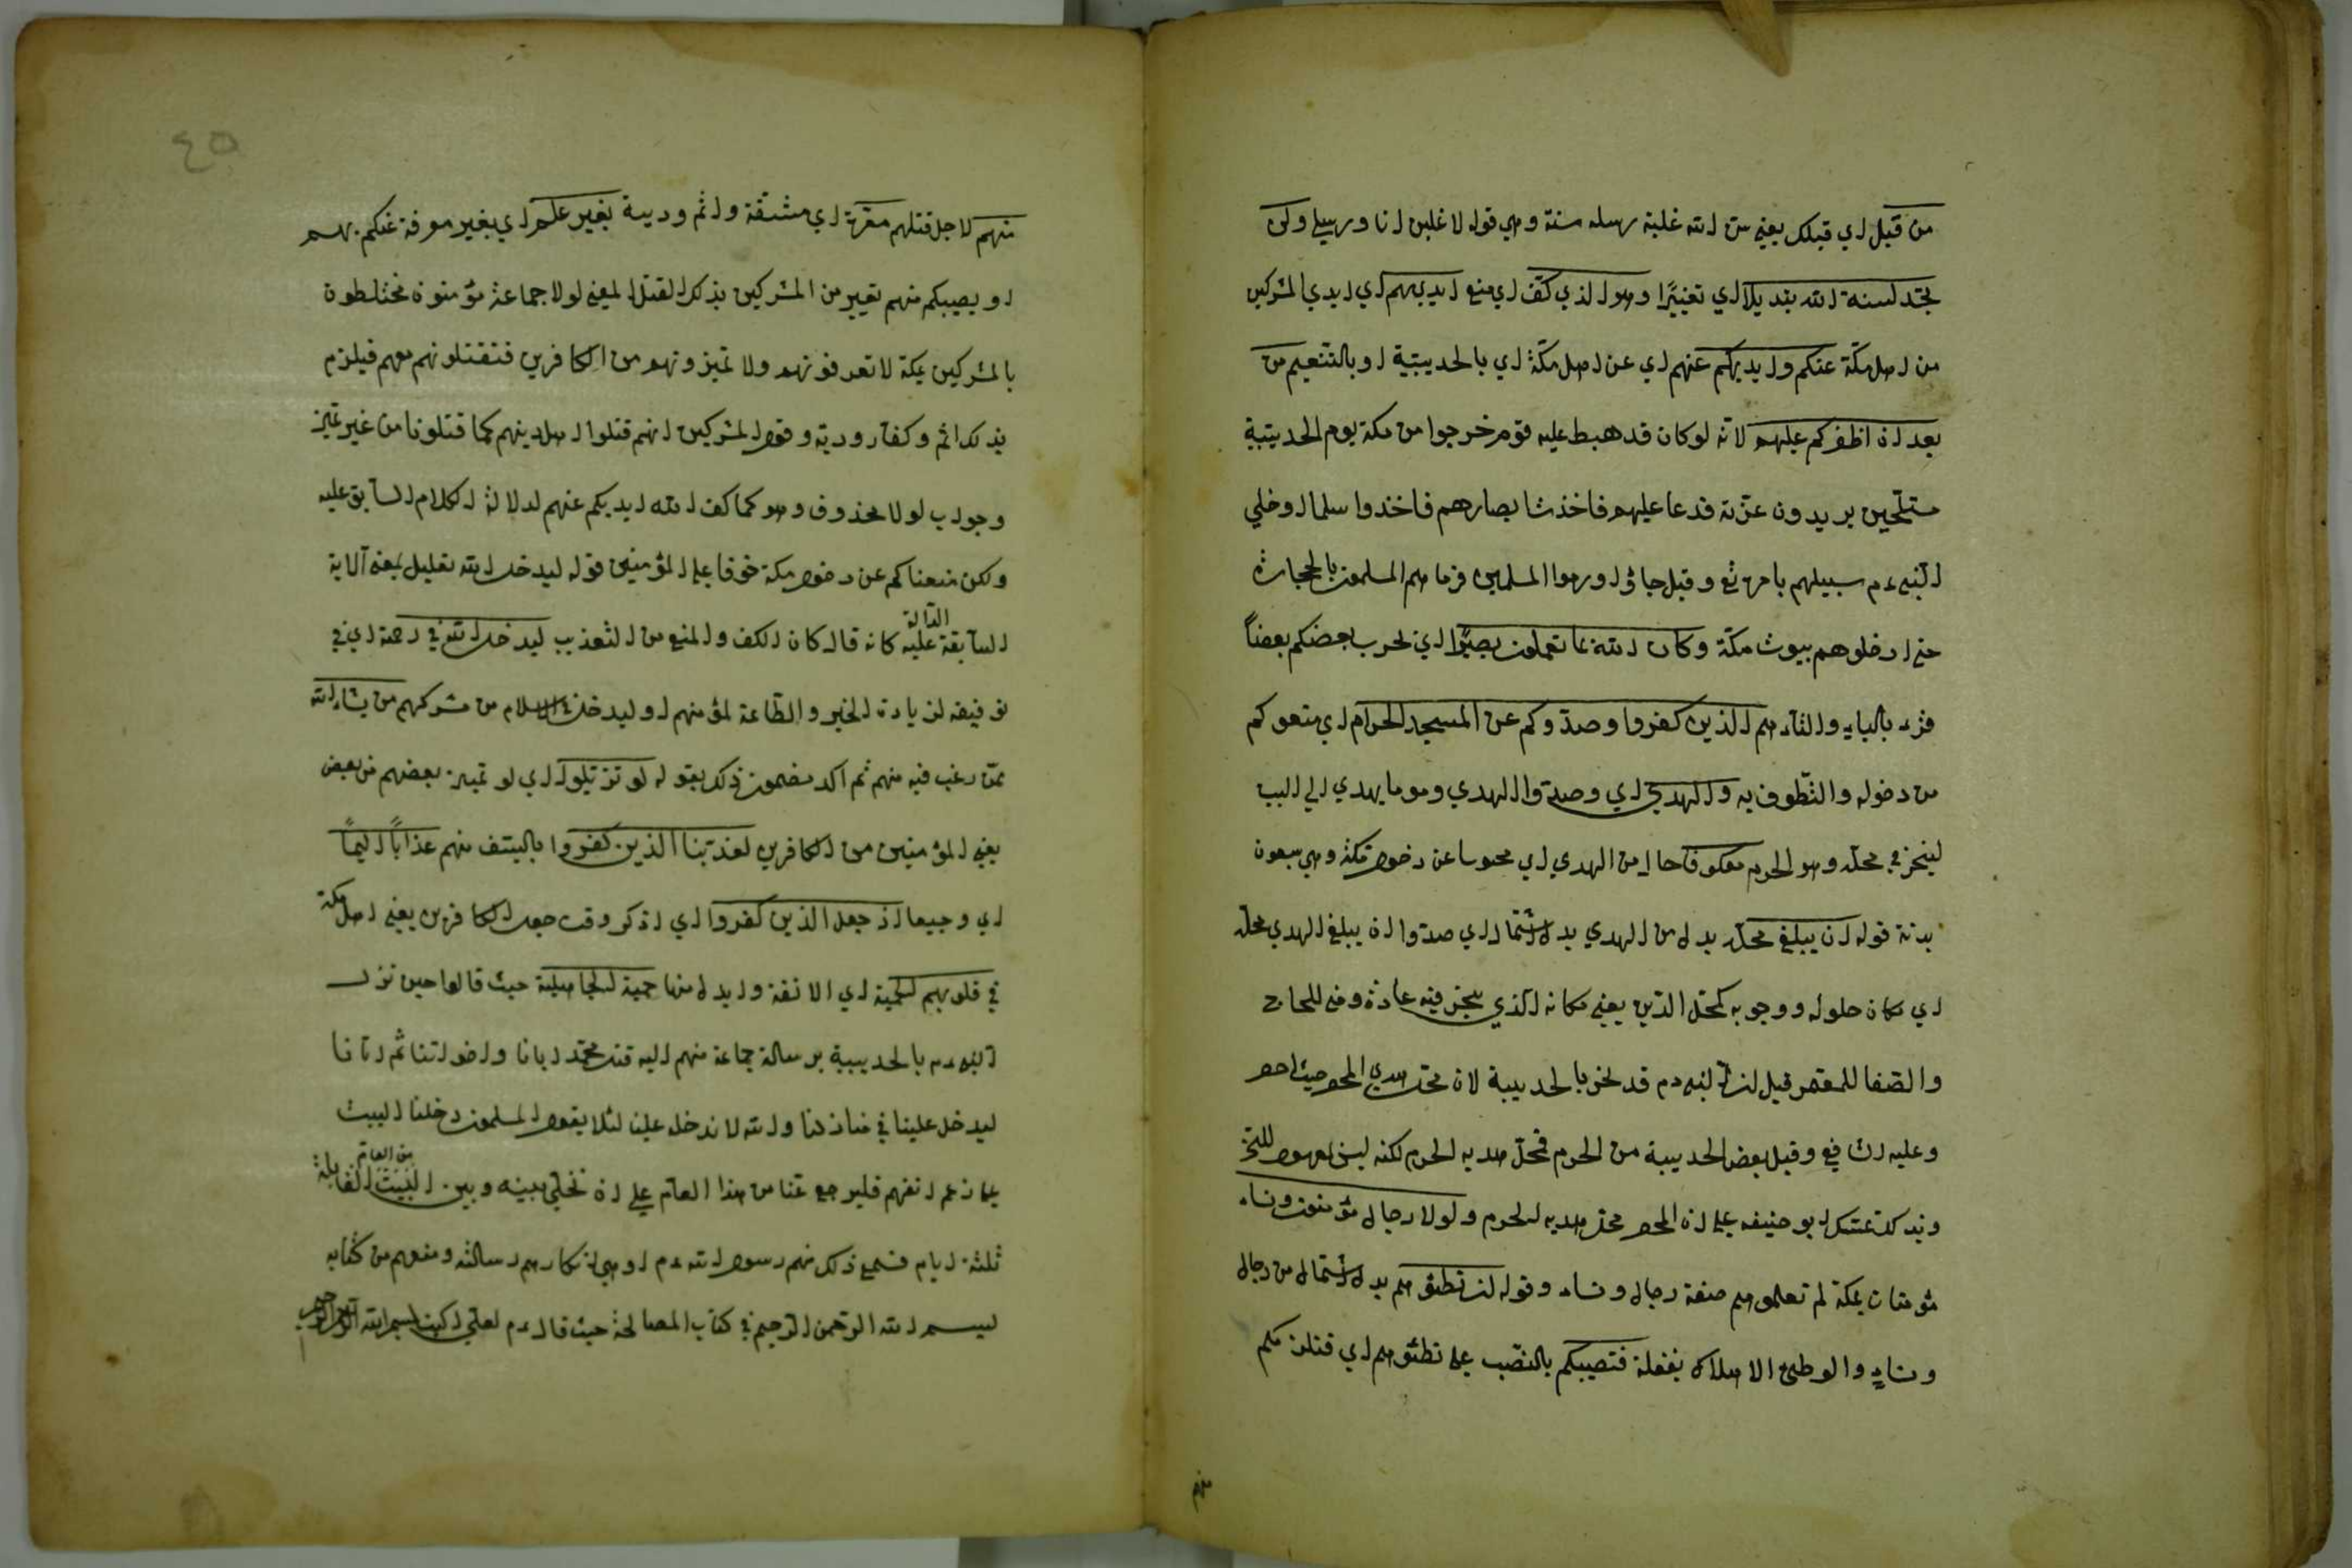 من قبل اي قبلك يعني سن الله غلبة رسله سنة وهي قوله لاغلبن انا ورسلي ولن
تجد لسنة الله تبديلا اي تغييرا وهو الذي كف اي منع ايديهم اي ايدي المشركين
من اهل مكة عنكم وايديكم عنهم اي عن اهل مكة اي بالحديبية او بالتنعيم من
بعد ان اظفركم عليهم لانه لو كان قد هبط عليه قوم خرجوا من مكة يوم الحديبية
متسلحين يريدون غرته فدعا عليهم فاخذت ابصارهم فاخذوا سلما او خلي
النبي ءم سبيلهم بامره تع وقيل جاؤا ورموا المسلمين فرماهم المسلمون بالحجارة
حتى ادخلوهم بيوت مكة وكان الله بما تعملون بصيرا اي لحرب بعضكم بعضا
قرء بالياء والتاء هم الذين كفروا وصدوكم عن المسجد الحرام اي منعوكم
من دخوله والتطوف به والهدي اي وصدوا الهدي وهو ما يهدي الى البيت
لينحر في محله وهو الحرم معكوفا حال من الهدي اي محبوسا عن دخول مكة وهي سبعون
بدنة قوله ان يبلغ محله بدل من الهدي بدل اشتمال اي صدوا ان يبلغ الهدي محله
اي مكان حلوله ووجوبه كمحل الدين يعني مكانه الذي ينحر فيه عادة ومني للحاج
والصفا للمعتمر قيل ان النبي ءم قد نحر بالحديبية لان محل هدي المحصر حيث احصر
وعليه الشافعي وقيل بعض الحديبية من الحرم فمحل هديه الحرم لكنه ليس المعهود للنحر
وبذلك تمسك ابو حنيفه على ان المحصر محل هديه الحرم ولولا رجال مؤمنون ونساء
مؤمنات بمكة لم تعلموهم صفة رجال ونساء وقوله ان تطئوهم بدل اشتمال من رجال
ونساء والوطئ الاهلاك بغفلة فتصيبكم بالنصب على تطئوهم اي قتلن مكم
منهم
٤٥
منهم لاجل قتلهم معرة اي مشقة واثم ودية بغير علم اي بغير معرفة عنكم بهم
او يصيبكم منهم تعيير من المشركين بذلك القتل المعنى لولا جماعة مؤمنون مختلطون
بالمشركين بمكة لا تعرفونهم ولا تميزونهم من الكافرين فتقتلونهم معهم فيلزم
بذلك اثم وكفارة ودية وقول المشركين انهم قتلوا اهل دينهم كما قتلونا من غير تميز
وجواب لولا محذوف وهو كما كف الله ايديكم عنهم لدلالة الكلام السابق عليه
ولكن منعناكم عن دخول مكة خوفا على المؤمنين قوله ليدخل الله تعليل لمعنى الاية
السابقة الدالة عليه كانه قال كان الكف والمنع من التعذيب ليدخل الله في رحمته اي في
توفيقه لزيادة الخير والطاعة لمؤمنهم او ليدخل في الاسلام من مشركهم من يشاء الله
ممن رغب فيه منهم ثم اكد مضمون ذلك بقوله لو تزيلوا اي لو تميز بعضهم من بعض
يعني المؤمنين من الكافرين لعذبنا الذين كفروا بالسيف منهم عذابا اليما
اي وجيعا اذ جعل الذين كفروا اي اذكر وقت جعل الكافرين يعني اهل مكة
في قلوبهم الحمية اي الانفة وابدل منها حمية الجاهلية حيث قالوا حين نزل
النبي ءم بالحديبية برسالة جماعة منهم اليه قتل محمد ابانا واخواننا ثم اتانا
ليدخل علينا في منازلنا والله لا ندخل علينا لئلا يقول المسلمون دخلنا البيت
على زعم انفهم فليرجع عنا من هذا العام على ان نخلي بينه وبين البيت من العام القابلة
ثلثة ايام فسمع ذلك منهم رسول الله ءم او هي انكارهم رسالته ومنعهم من كتابه
بسم الله الرحمن الرحيم في كتاب المصالحة حيث قال ءم لعلي اكتب بسم الله الرحمن الرحيم